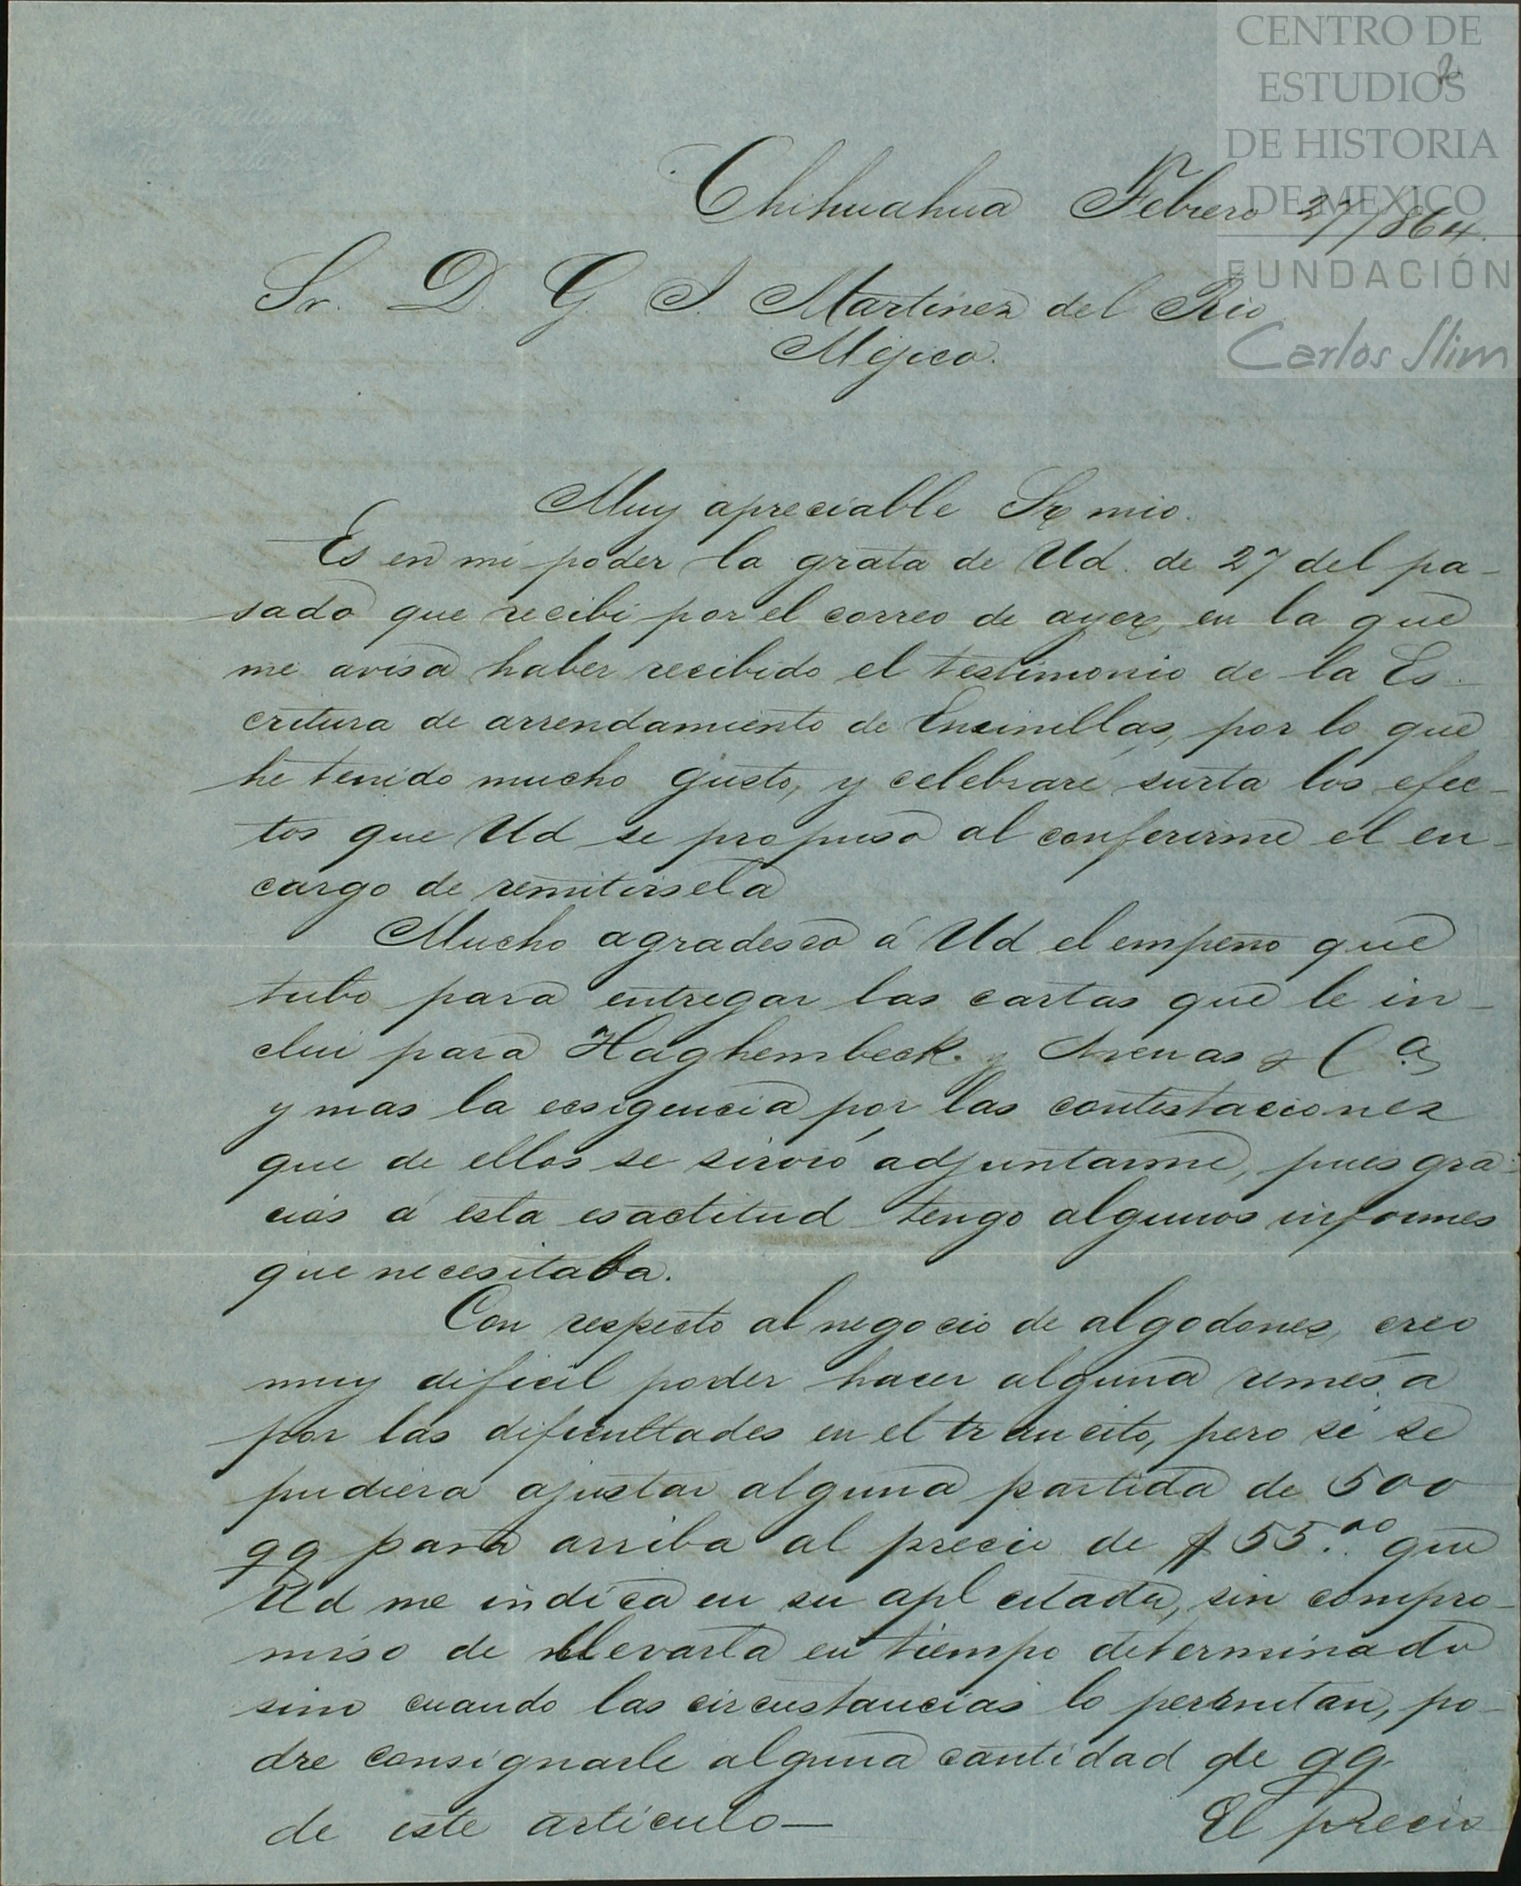 CENTRO DE
ESTUDIOS
DE HISTORIA
DE MEXICO
FUNDACIÓN
Carlos Slim
2
Chihuahua Febrero 27/864.
Sr. D. G. I. Martinez del Rio
Mejico.
Muy apreciable Sr mio.
Es en mi poder la grata de Ud. de 27 del pa-
sado que recibi por el correo de ayer, en la que
me avisa haber recibido el testimonio de la Es-
critura de arrendamiento de Encinillas, por lo que
he tenido mucho gusto, y celebraré surta los efec-
tos que Ud se propuso al conferirme el en-
cargo de remitirsela
Mucho agradesco á Ud el empeño que
tubo para entregar las cartas que le in-
clui para Haghembeck y Arenas y Ca
y mas la ecsigencia por las contestaciones
que de ellos se sirvió adjuntarme, pues gra-
cias á esta esactitud tengo algunos informes
que necesitaba.
Con respecto al negocio de algodones, creo
muy dificil poder hacer alguna remesa
por las dificultades en el trancito, pero si se
pudiera ajustar alguna partida de 500
qq para arriba al precio de $ 55.00 que
Ud me indica en su apl citada, sin compro-
miso de llevarla en tiempo determinado
sino cuando las circustancias lo permitan, po-
dre consignarle alguna cantidad de qq
de este artículo— El precio